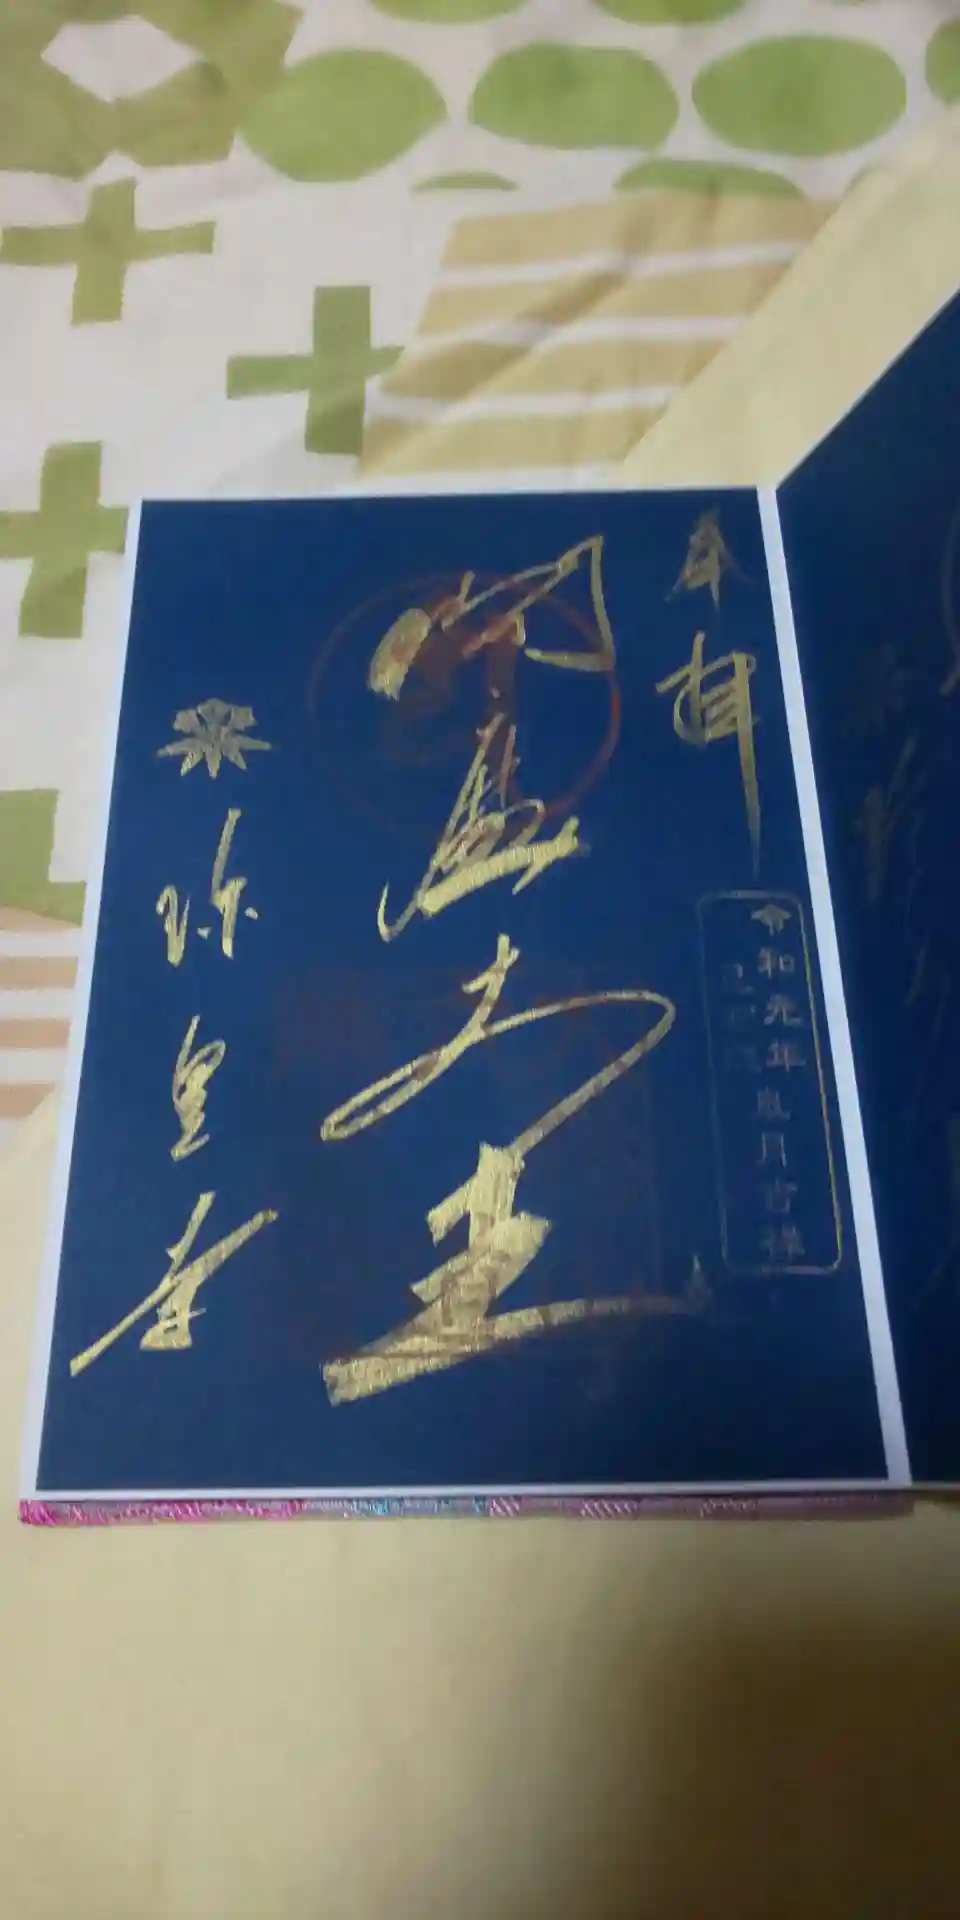 奉拝
令和元年 月吉祥
閻魔大王
珍皇寺